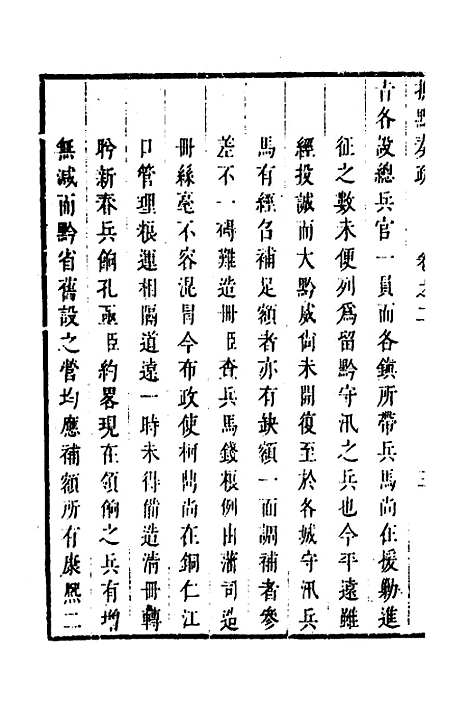 撫黔奏疏 卷之二 三
古各設總兵官一員而各鎮所帶兵馬尚在援勦進
征之數未便列為留黔守汛之兵也今平遠雖
經投誠而大黔威尚未開復至於各城守汛兵
馬有經召補足額者亦有缺額一面調補者參
差不一碍難造冊臣查兵馬錢糧例由藩司造
冊絲毫不容混冐今布政使柯鼎尚在銅仁江
口管理糧運相隔道遠一時未得備造清冊轉
盼新春兵餉孔亟臣約畧現在領餉之兵有增
無減而黔省舊設之營均應補額所有康熙二